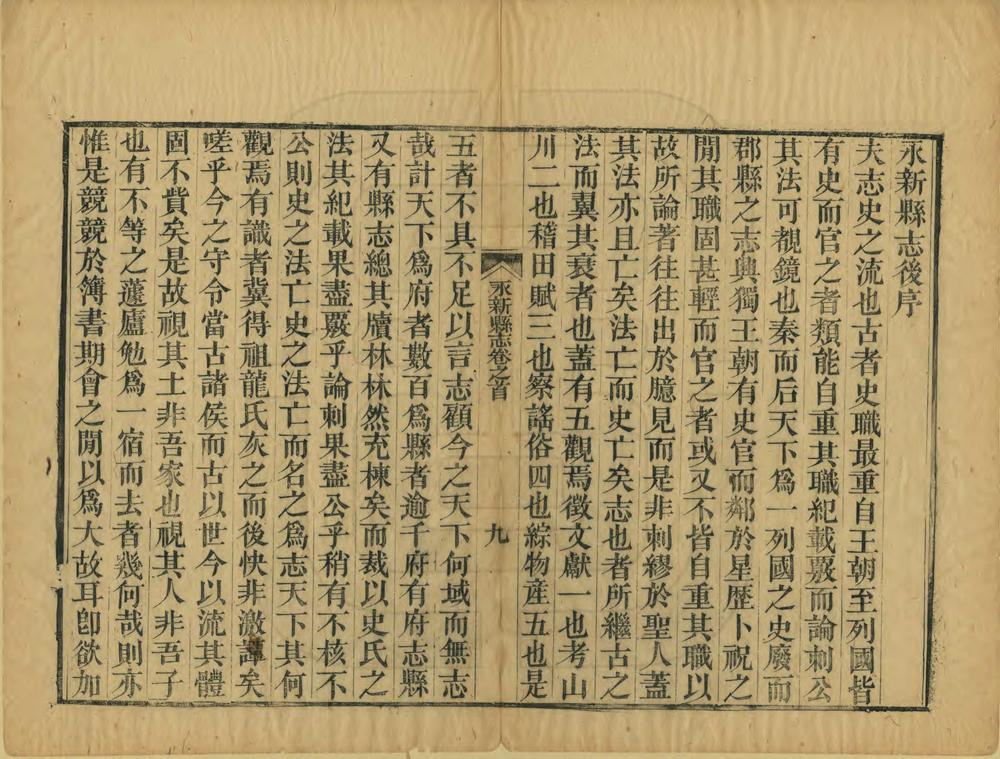 永新縣志後序
夫志史之流也古者史職最重自王朝至列國皆
有史而官之者類能自重其職紀載覈而論刺公
其法可覩鏡也秦而后天下爲一列國之史廢而
郡縣之志興獨王朝有史官而鄰於星歷卜祝之
閒其職固甚輕而官之者或又不皆自重其職以
故所論著往往出於臆見而是非刺繆於聖人蓋
其法亦且亡矣法亡而史亡矣志也者所繼古之
法而翼其衰者也蓋有五觀焉徵文獻一也考山
川二也稽田賦三也察謠俗四也綜物産五也是
永新縣志卷之首
九
五者不具不足以言志顧今之天下何域而無志
哉計天下爲府者數百爲縣者逾千府有府志縣
又有縣志總其牘林林然充棟矣而裁以史氏之
法其紀載果盡覈乎論刺果盡公乎稍有不核不
公則史之法亡史之法亡而名之爲志天下其何
觀焉有識者冀得祖龍氏灰之而後快非激譚矣
嗟乎今之守令當古諸侯而古以世今以流其體
固不賁矣是故視其土非吾家也視其人非吾子
也有不等之蘧廬勉爲一宿而去者幾何哉則亦
惟是競競於簿書期會之閒以爲大故耳卽欲加